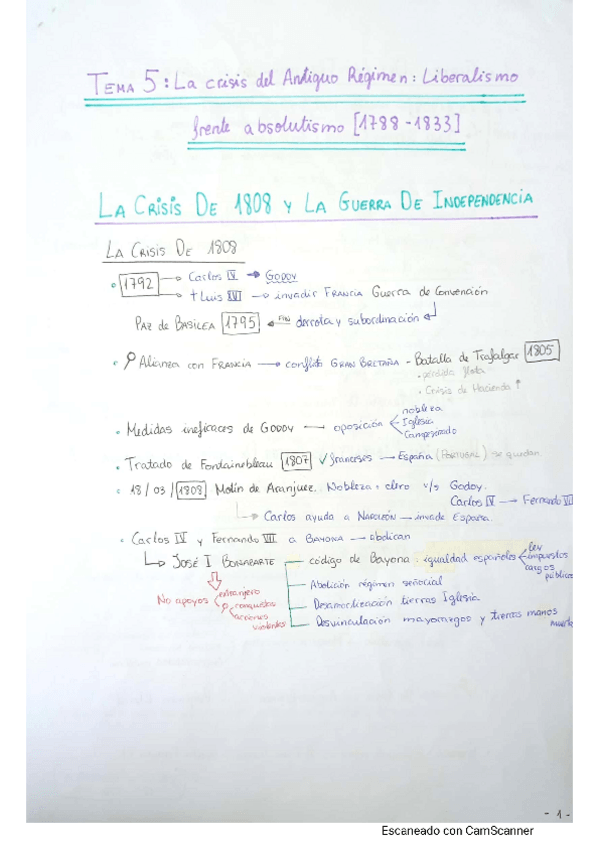 TEMA 5: La crisis del Antiguo Régimen: Liberalismo
frente absolutismo [1788-1833]
LA CRISIS DE 1808 Y LA GUERRA DE INDEPENDENCIA
LA CRISIS DE 1808
1792 → Carlos IV → GODOY
→ † Luis XVI → invadir FRANCIA Guerra de Convención
PAZ de BASILEA 1795 ← FIN derrota y subordinación
Alianza con FRANCIA → conflicto GRAN BRETAÑA - Batalla de Trafalgar 1805
• pérdida flota
• Crisis de Hacienda ↑
• Medidas ineficaces de GODOY → oposición
nobleza
Iglesia
Campesinado
• Tratado de Fontainebleau 1807 ✓ franceses → España (PORTUGAL) se quedan
• 18/03/1808 Motín de Aranjuez. Nobleza + clero v/s Godoy.
Carlos IV → Fernando VII
→ Carlos ayuda a NAPOLEÓN → invade España.
• Carlos IV y Fernando VII a BAYONA → abdican
→ JOSÉ I BONAPARTE
código de Bayona: igualdad españoles
ley
impuestos
cargos públicos
No apoyos
extranjero
conquistas
acciones violentas
Abolición régimen señorial
Desamortización tierras Iglesia
Desvinculación mayorazgos y tierras manos muertas
- 1 -
Escaneado con CamScanner